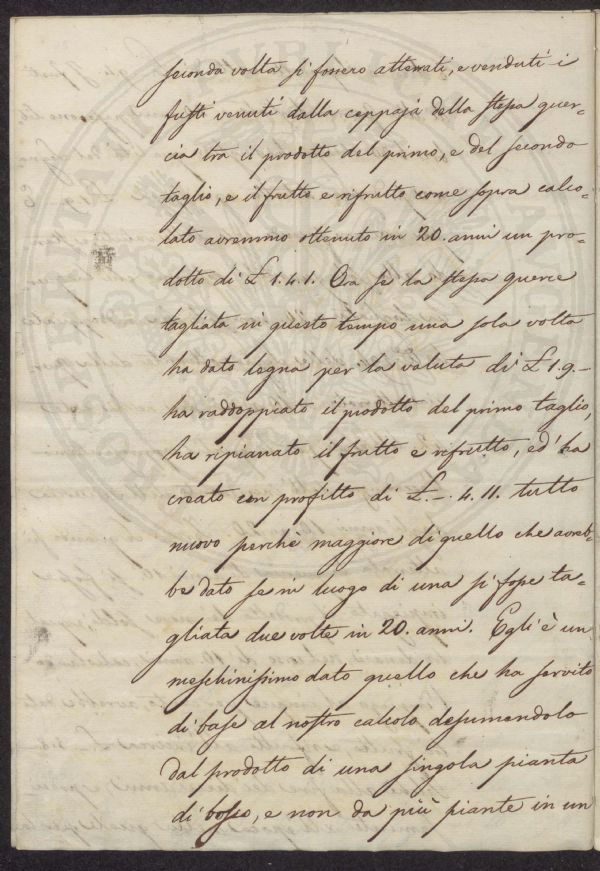 seconda volta si fossero atterrati, e venduti i
fusti venuti dalla ceppaja della stessa quer-
cia tra il prodotto del primo, e del secondo
taglio, e il frutto e rifrutto come sopra calco-
lato avremmo ottenuto in 20. anni un pro-
dotto di £ 1.4.1. Ora se la stessa querce
tagliata in questo tempo una sola volta
ha dato legna per la valuta di £ 1.9.-
ha raddoppiato il prodotto del primo taglio,
ha ripianato il frutto e rifrutto, ed ha
creato un profitto di £.-. 4. 11. tutto
nuovo perchè maggiore di quello che avreb-
be dato se in luogo di una si fosse ta-
gliata due volte in 20. anni. Egli è un
meschinissimo dato quello che ha servito
di base al nostro calcolo desumendolo
dal prodotto di una singola pianta
di bosco, e non da più piante in un